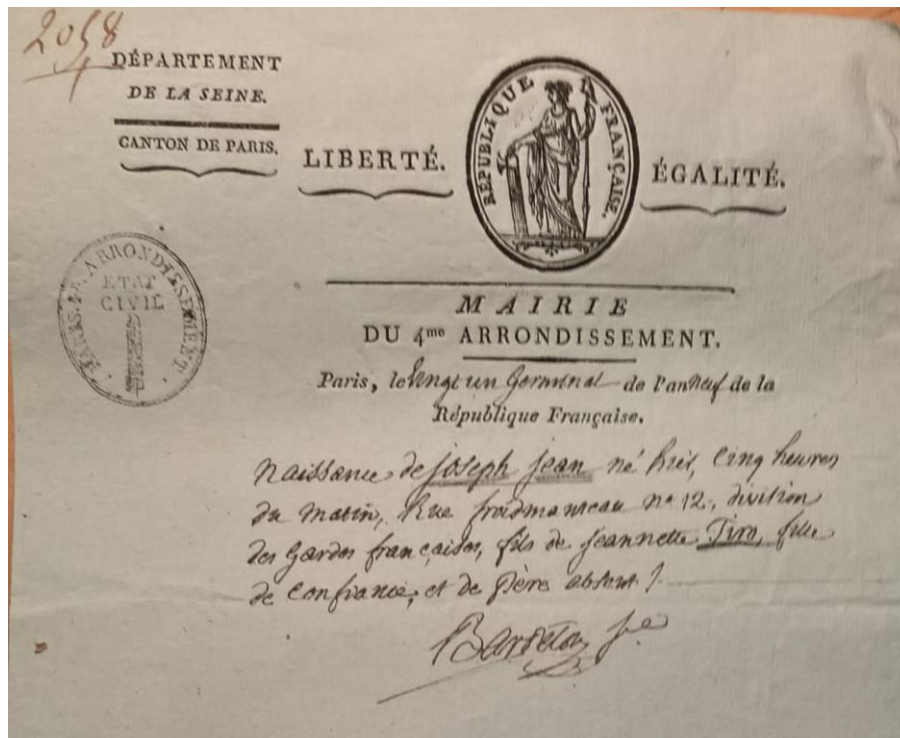 2058
DÉPARTEMENT
DE LA SEINE.
CANTON DE PARIS.
LIBERTÉ.
RÉPUBLIQUE FRANÇAISE.
ÉGALITÉ.
PARIS. 4.me ARRONDISSEMENT.
ETAT
CIVIL
MAIRIE
DU 4me ARRONDISSEMENT.
Paris, le Vingt un Germinal de l'an neuf de la
République Française.
Naissance de Joseph Jean né hier, Cinq heures
du Matin, Rue froidmanteau n° 12, division
des Gardes françaises, fils de Jeannette Tiro, fille
de Confiance, et de Père absent